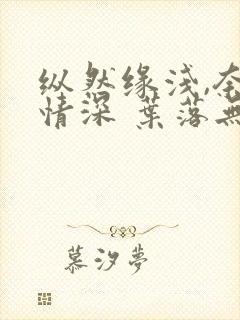 纵然缘浅,奈
情深 葉落無
慕汐夢